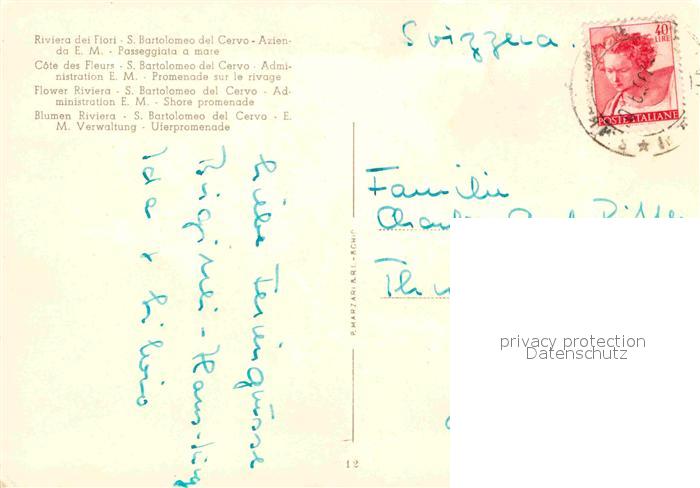 Riviera dei Fiori - S. Bartolomeo del Cervo - Azien-
da E. M. - Passeggiata a mare
Côte des Fleurs - S. Bartolomeo del Cervo - Admi-
nistration E. M. - Promenade sur le rivage
Flower Riviera - S. Bartolomeo del Cervo - Ad-
ministration E. M. - Shore promenade
Blumen Riviera - S. Bartolomeo del Cervo - E.
M. Verwaltung - Uferpromenade
Svizzera.
40
LIRE
POSTE ITALIANE
Familie
Liebe Feriengrüsse
Ida +
P. MARZARI S.R.L. - SCHIO
12
privacy protection
Datenschutz